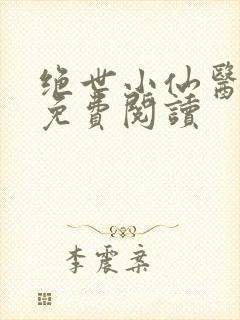 绝世小仙醫
免費閱讀
李震案